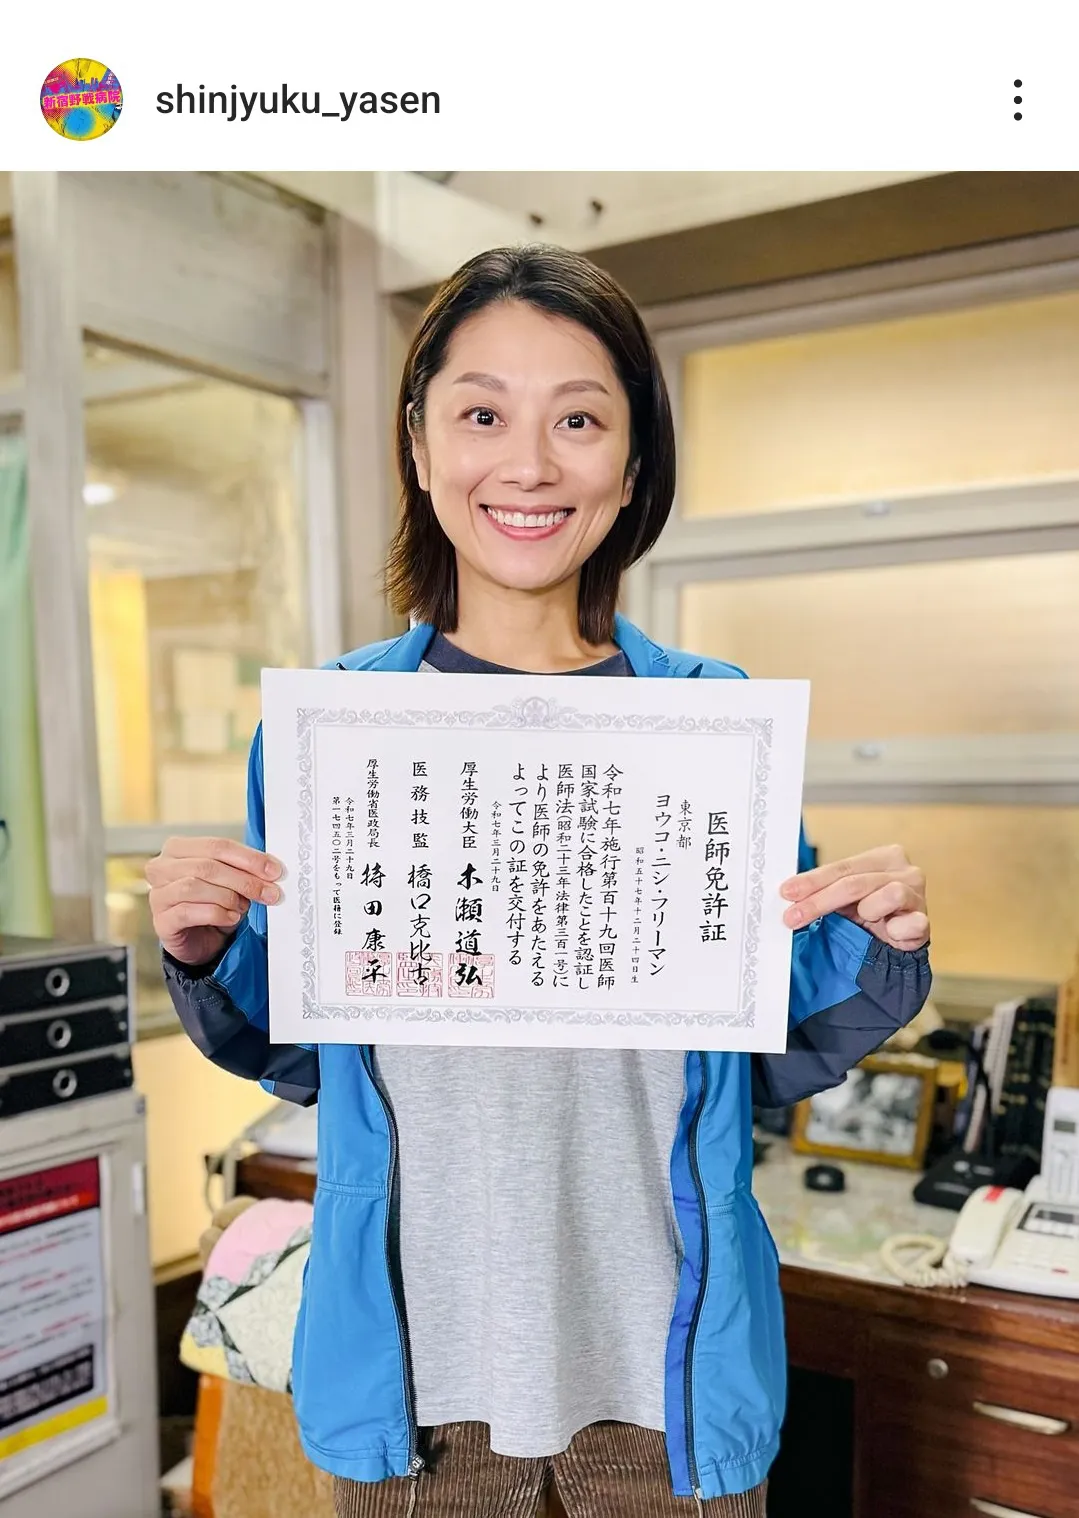 新宿野戦病院
shinjyuku_yasen
医師免許証
東京都
昭和五十七年十二月二十四日生
ヨウコ・ニシ・フリーマン
令和七年施行第百十九回医師
国家試験に合格したことを認証し
医師法(昭和二十三年法律第三百一号)に
より医師の免許をあたえる
よってこの証を交付する
令和七年三月二十九日
厚生労働大臣 木瀬道弘
医務技監 橋口克比古
厚生労働省医政局長 持田康平
令和七年三月二十九日
第一七四五〇二号をもって医籍に登録